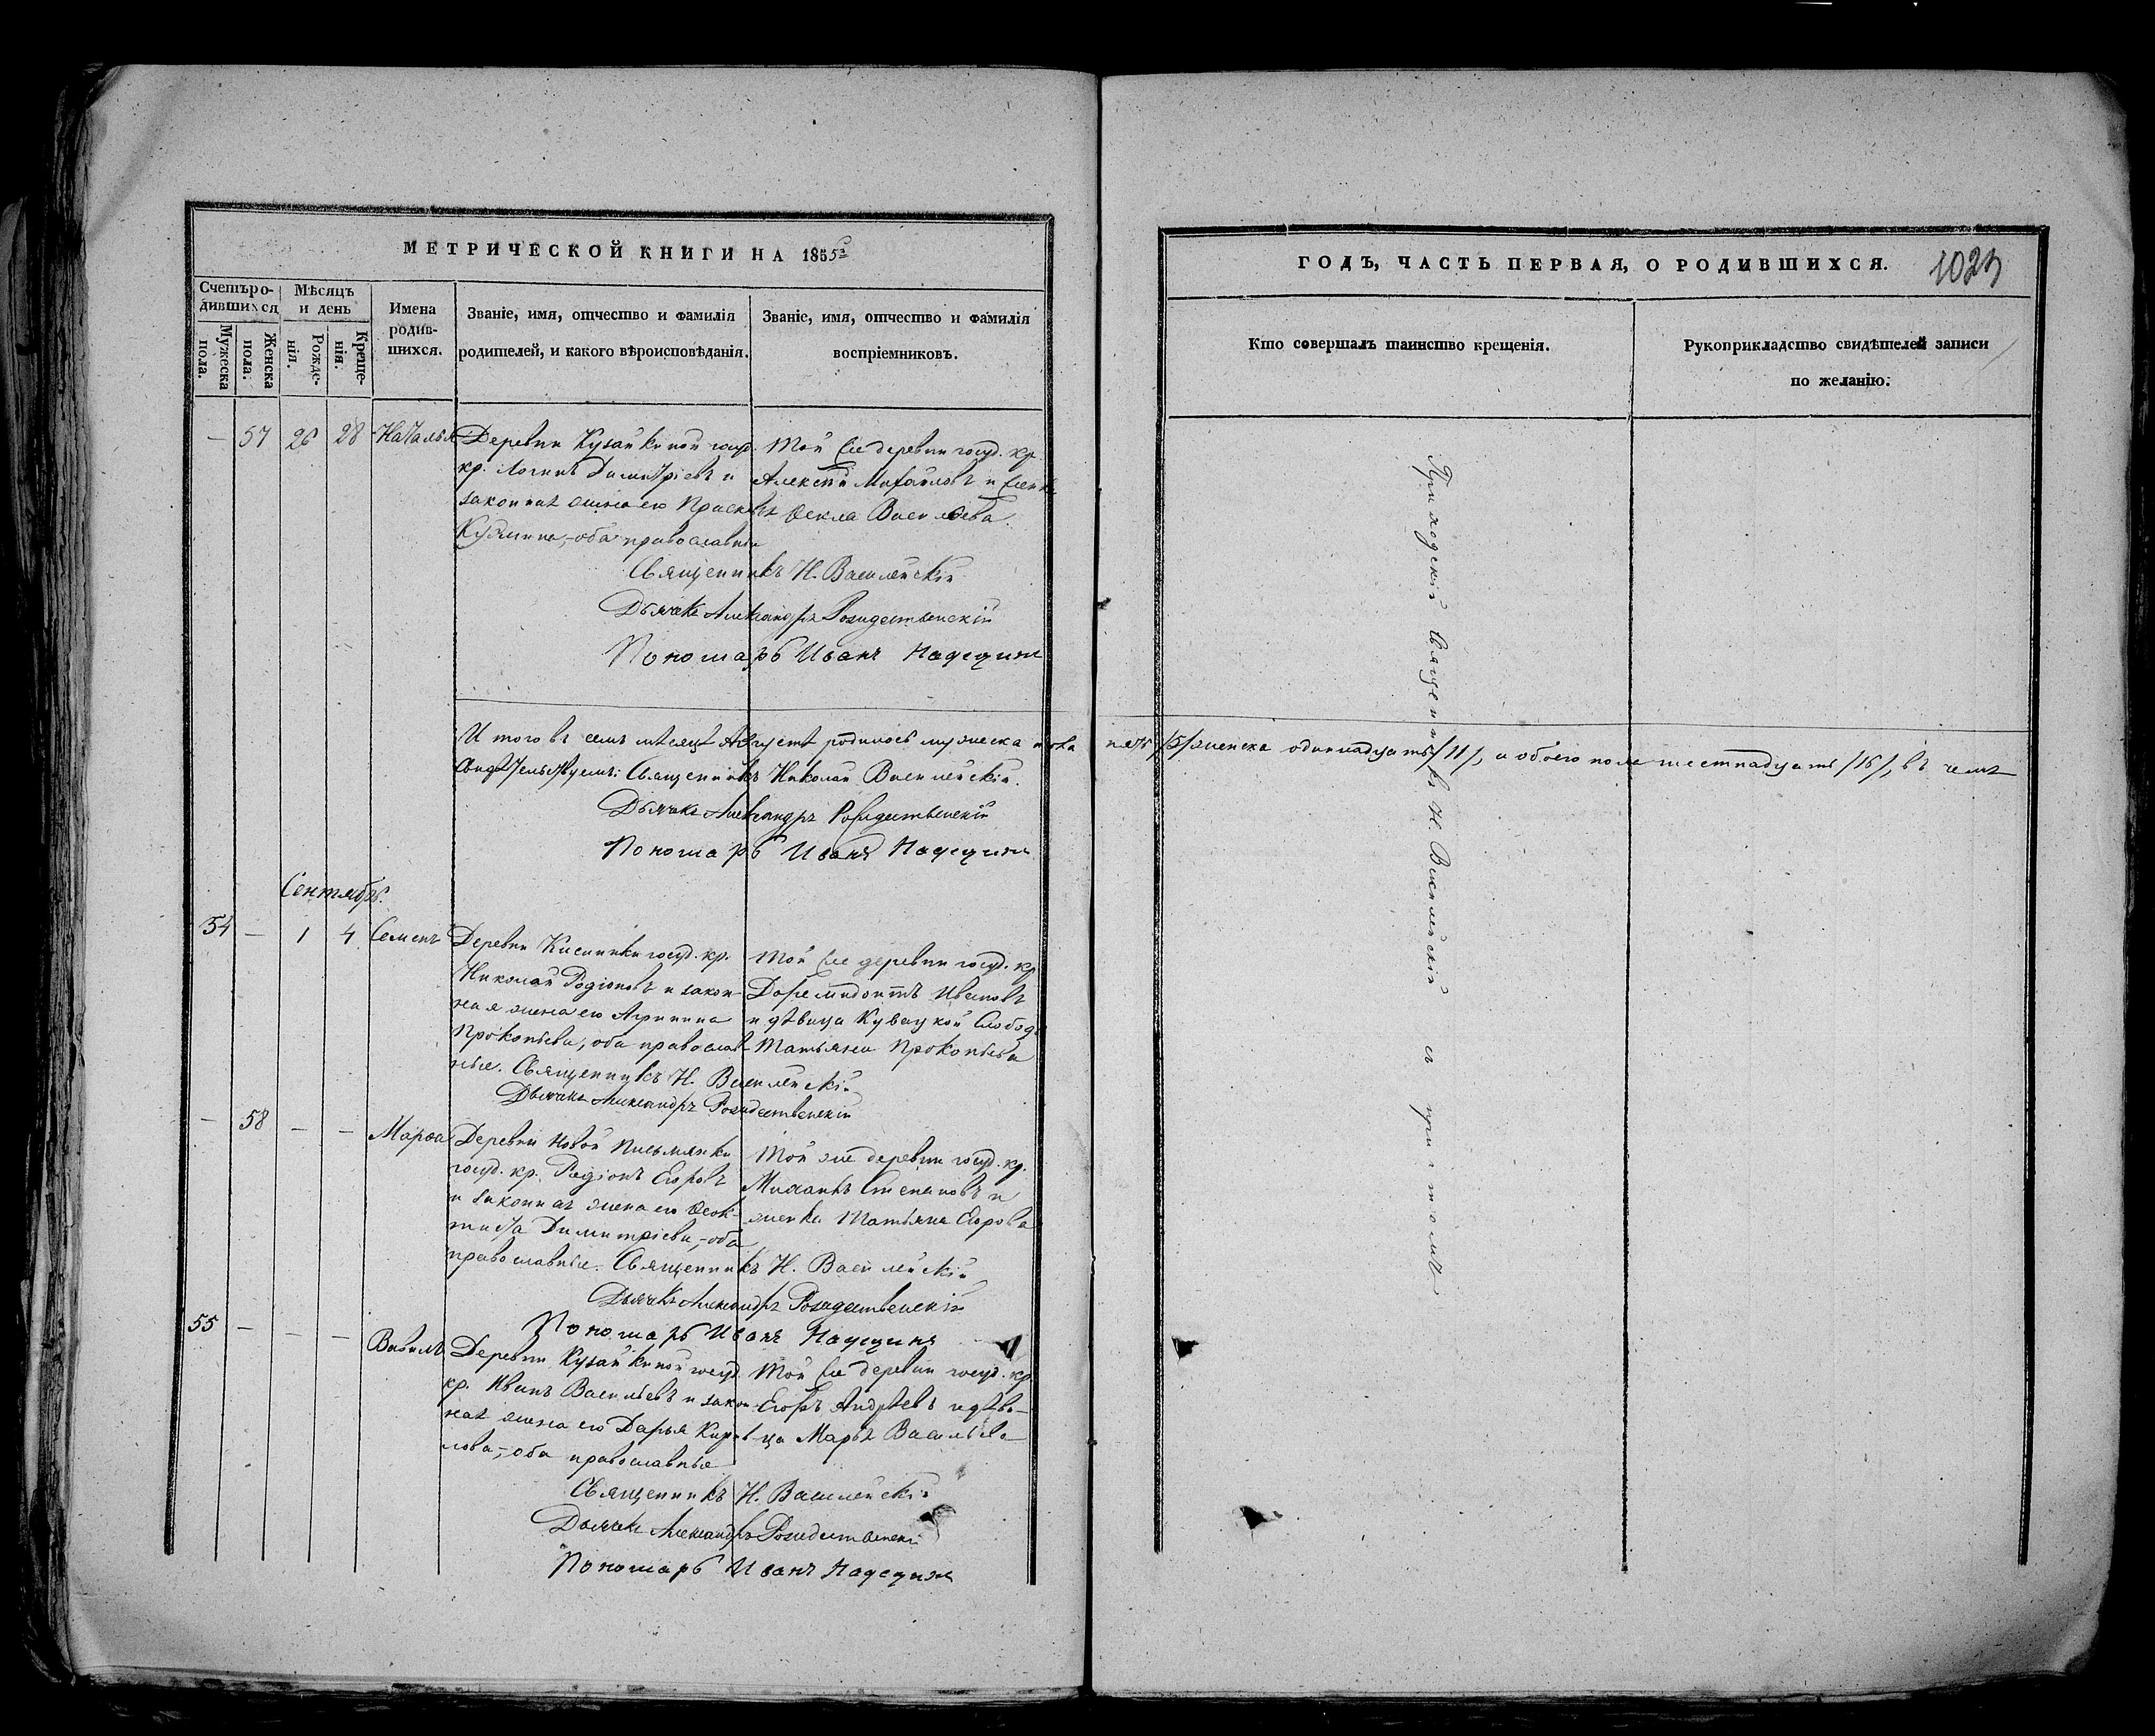 МЕТРИЧЕСКОЙ КНИГИ НА 1855
Счетъ родившихся
Мѣсяцъ и день
Имена родившихся.
Званіе, имя, отчество и фамилія родителей, и какого вѣроисповѣданія.
Званіе, имя, отчество и фамилія воспріемниковъ.
Мужеска пола.
Женска пола.
Рожденія.
Крещенія.
— 57 26 28 Наталья
Деревни Кузайкиной госуд.
кр. Логинъ Димитріевъ и
законная жена его
Кузмина, оба православные
Той же деревни госуд. кр.
Алексѣй Михайловъ и
Ѳекла Васильева
Священникъ Н. Василейскій
Дьячекъ Александръ Рождественскій
Пономарь Иванъ Надеждинъ
Итого въ семъ мѣсяцѣ Августѣ родилось мужеска пола
Свидѣтельствуемъ: Священникъ Николай Василейскій.
Дьячекъ Александръ Рождественскій
Пономарь Иванъ Надеждинъ
Сентябрь.
54 — 1 4 Семенъ
Деревни госуд. кр.
Николай Родіоновъ и закон-
ная жена его
Прокопьева, оба православ-
ные. Священникъ Н. Василейскій
Дьячекъ Александръ Рождественскій
Той же деревни госуд. кр.
Доремидонтъ Ивановъ
и дѣвица Кувацкой Слободы
Татьяна Прокопьева
— 58 — — Марѳа
Деревни Новой Письмянки
госуд. кр. Родіонъ Егоровъ
и законная жена его Ѳеок-
тиста Димитріева, оба
православные. Священникъ Н. Василейскій
Той же деревни госуд. кр.
Степановъ и
женка Татьяна Егорова
Дьячекъ Александръ Рождественскій
Пономарь Иванъ Надеждинъ
55 — — — Вавила
Деревни Кузайкиной госуд.
кр. Иванъ Васильевъ и закон-
ная жена его Дарья Кирил-
лова, оба православные
Той же деревни госуд. кр.
Егоръ Андреевъ и дѣви-
ца Марья Васильева
Священникъ Н. Василейскій
Дьячекъ Александръ Рождественскій
Пономарь Иванъ Надеждинъ
ГОДЪ, ЧАСТЬ ПЕРВАЯ, О РОДИВШИХСЯ.
Кто совершалъ таинство крещенія.
Рукоприкладство свидѣтелей записи
по желанію.
Приходскій Священникъ Н. Василейскій съ причтомъ
пять /5/ женска одиннадцать /11/, и обоего пола шестнадцать /16/, въ чемъ